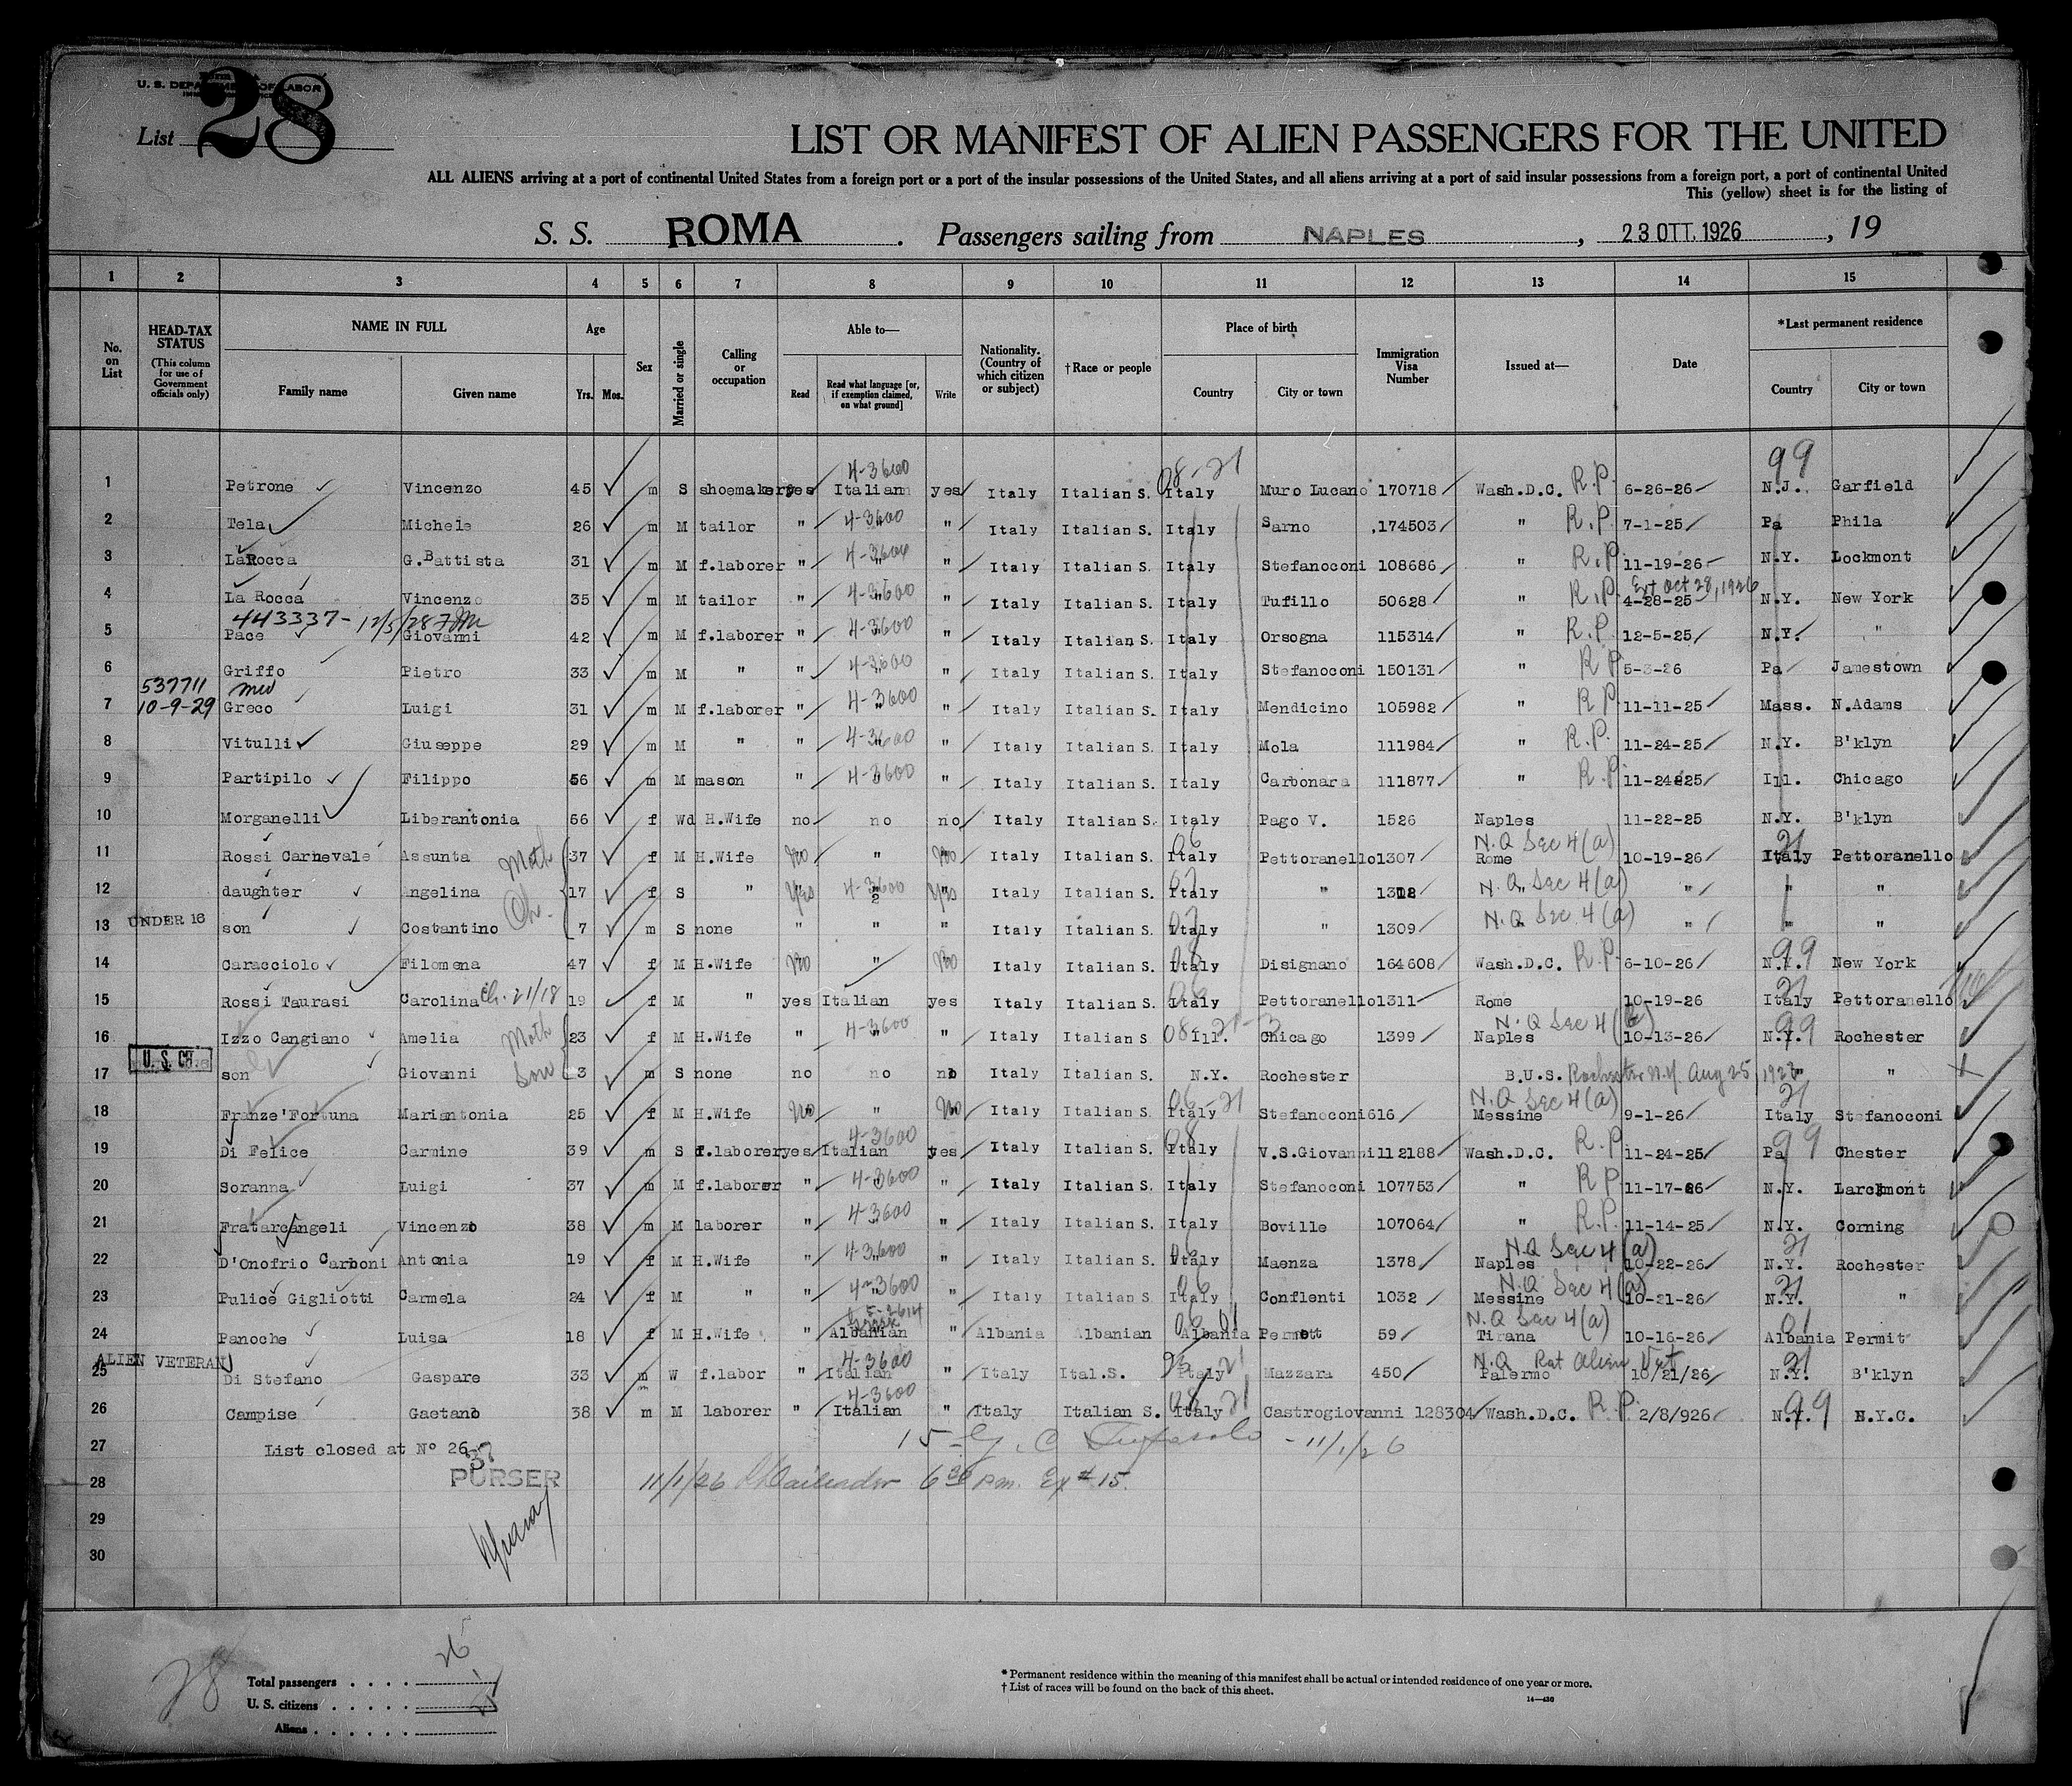 U. S. DEPARTMENT OF LABOR
List 28
LIST OR MANIFEST OF ALIEN PASSENGERS FOR THE UNITED
ALL ALIENS arriving at a port of continental United States from a foreign port or a port of the insular possessions of the United States, and all aliens arriving at a port of said insular possessions from a foreign port, a port of continental United
This (yellow) sheet is for the listing of
S. S. ROMA . Passengers sailing from NAPLES , 23 OTT. 1926 , 19
1 2 3 4 5 6 7 8 9 10 11 12 13 14 15
No. on List
HEAD-TAX STATUS (This column for use of Government officials only)
NAME IN FULL Family name Given name
Age Yrs. Mos.
Sex
Married or single
Calling or occupation
Able to— Read Read what language [or, if exemption claimed, on what ground] Write
Nationality. (Country of which citizen or subject)
†Race or people
Place of birth Country City or town
Immigration Visa Number
Issued at—
Date
*Last permanent residence Country City or town
1 Petrone Vincenzo 45 m S shoemaker yes 4-3600 Italian yes Italy Italian S. 08-21 Italy Muro Lucano 170718 Wash.D.C. R.P. 6-26-26 99 N.J. Garfield
2 Tela Michele 26 m M tailor " 4-3600 " Italy Italian S. Italy Sarno 174503 " R.P. 7-1-25 Pa Phila
3 LaRocca G.Battista 31 m M f.laborer " 4-3600 " Italy Italian S. Italy Stefanoconi 108686 " R.P. 11-19-26 N.Y. Lockmont
4 La Rocca Vincenzo 35 m M tailor " 4-3600 " Italy Italian S. Italy Tufillo 50628 " R.P. Ext Oct 28, 1926 4-28-25 N.Y. New York
443337- 12/5/28
5 Pace Giovanni 42 m M f.laborer " 4-3600 " Italy Italian S. Italy Orsogna 115314 " R.P. 12-5-25 N.Y. "
6 Griffo Pietro 33 m M " " 4-3600 " Italy Italian S. Italy Stefanoconi 150131 " R P 5-3-26 Pa Jamestown
537711
7 10-9-29 Greco Luigi 31 m M f.laborer " 4-3600 " Italy Italian S. Italy Mendicino 105982 " R P 11-11-25 Mass. N.Adams
8 Vitulli Giuseppe 29 m M " " 4-3600 " Italy Italian S. Italy Mola 111984 " R.P. 11-24-25 N.Y. B'klyn
9 Partipilo Filippo 56 m M mason " 4-3600 " Italy Italian S. Italy Carbonara 111877 " R.P 11-24-25 Ill. Chicago
10 Morganelli Liberantonia 56 f Wd H.Wife no no no Italy Italian S. Italy Pago V. 1526 Naples 11-22-25 N.Y. B'klyn
11 Rossi Carnevale Assunta Moth 37 f M H.Wife No " No Italy Italian S. 06 Italy Pettoranello 1307 N.Q Sec 4(a) Rome 10-19-26 21 Italy Pettoranello
12 daughter Angelina 17 f S " Yes 4-3600 Yes Italy Italian S. Italy " N.Q. Sec 4(a) " " " "
UNDER 16
13 son Costantino Ch. 7 m S none " " " Italy Italian S. Italy " 1309 N.Q Sec. 4(a) " " "
14 Caracciolo Filomena 47 f M H.Wife No " No Italy Italian S. 08 Italy Disignano 164608 Wash.D.C. R.P. 6-10-26 99 N.Y. New York
15 Rossi Taurasi Carolina Ch. 21/18 19 f M " yes Italian yes Italy Italian S. 06 Italy Pettoranello 1311 Rome 10-19-26 21 Italy Pettoranello
16 Izzo Cangiano Amelia Moth 23 f M H.Wife " 4-3600 " Italy Italian S Ill. Chicago 1399 N.Q Sec 4 Naples 10-13-26 99 N.Y. Rochester
U.S. CH.
17 son Giovanni Son 3 m S none no no no Italy Italian S. N.Y. Rochester B.U.S. Rochester N.Y. Aug 25 "
18 Franze'Fortuna Mariantonia 25 f M H.Wife No " No Italy Italian S. 06-21 Italy Stefanoconi 616 N.Q Sec 4(a) Messine 9-1-26 21 Italy Stefanoconi
19 Di Felice Carmine 39 m S f.laborer yes 4-3600 Italian yes Italy Italian S. 08 Italy V.S.Giovanni 112188 Wash.D.C. R.P 11-24-25 99 Pa Chester
20 Soranna Luigi 37 m M f.laborer " 4-3600 " Italy Italian S. Italy Stefanoconi 107753 " R P 11-17-26 N.Y. Larchmont
21 Fratarcangeli Vincenzo 38 m M laborer " 4-3600 " Italy Italian S. Italy Boville 107064 " R.P. 11-14-25 N.Y. Corning
22 D'Onofrio Carboni Antonia 19 f M H.Wife " 4-3600 " Italy Italian S. 06 Italy Maenza 1378 N.Q Sec 4(a) Naples 10-22-26 21 N.Y. Rochester
23 Pulice Gigliotti Carmela 24 f M " " 4-3600 " Italy Italian S 06 Italy Conflenti 1032 N.Q Sec 4(a) Messine 10-21-26 21 N.Y. "
24 Panoche Luisa 18 f M H.Wife " Albanian " Albania Albanian 06 01 Albania 59 N.Q Sec 4(a) Tirana 10-16-26 01 Albania Permit
ALIEN VETERAN
25 Di Stefano Gaspare 33 m W f.labor " 4-3600 Italian " Italy Ital.S. Italy 21 Mazzara 450 N.Q. Rat Alien Vet Palermo 10/21/26 21 N.Y. B'klyn
26 Campise Gaetano 38 m M laborer " 4-3600 Italian " Italy Italian S. 08 21 Italy Castrogiovanni 128304 Wash.D.C. R.P. 2/8/926 99 N.Y. N.Y.C.
27 List closed at Nº 26 - 11/1/26
28 PURSER 11/1/26 6 30 pm. Ex # 15.
29
30
28
Total passengers . . . . 26
U. S. citizens . . . . .
Aliens . . . . . .
* Permanent residence within the meaning of this manifest shall be actual or intended residence of one year or more.
† List of races will be found on the back of this sheet.
14—430